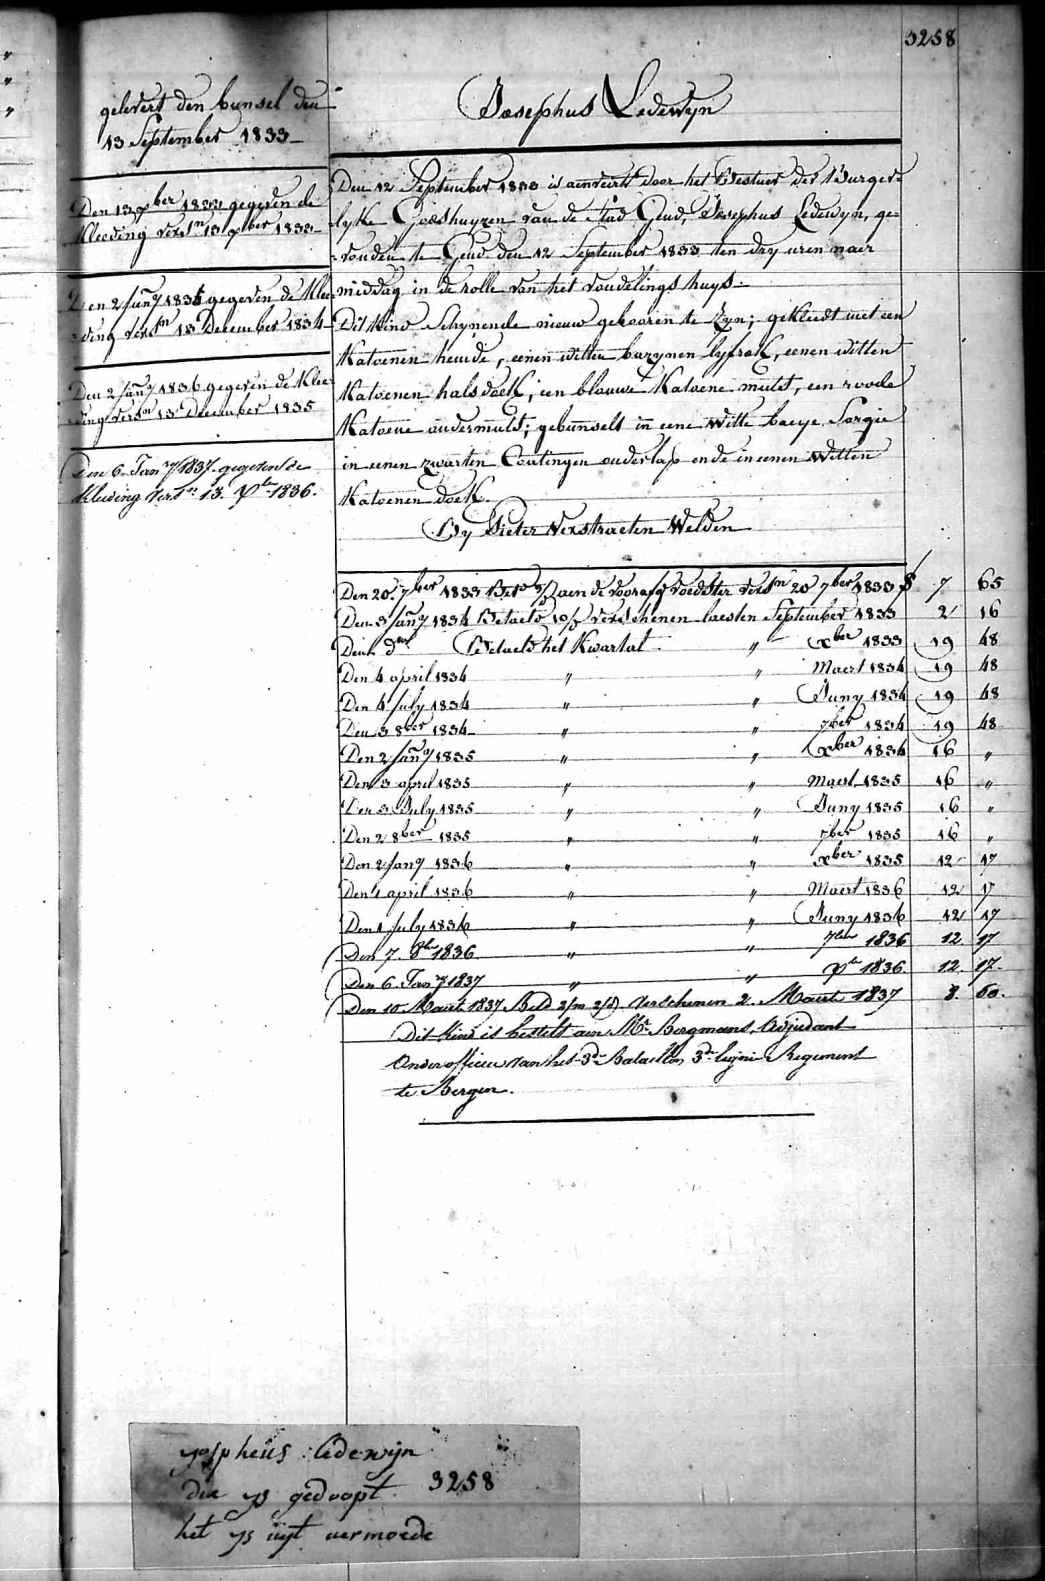 3258
gelevert den bunsel den
13 September 1833
Den 13 xber 1833 gegeven de
Kleeding verst.n 13 xber 1833
Den 2 Jany 1835 gegeven de Klee
ding verst.n 13 December 1834
Den 2 Jany 1836 gegeven de Klee
ding verst.n 13 December 1835
Den 6 Jan.y 1837 gegeven de
kleeding vers.n 13. Xbr 1836.
Josephus Ledewyn
Den 12 September 1833 is aenveirt door het Bestuer der Burger=
lyke Godshuyzen van de stad Gend, Josephus Ledewyn, ge=
vonden te Gend den 12 September 1833 ten dry uren naer
middag in de rolle van het vondelings huys.
Dit Kind schynende nieuw gebooren te Zyn; gekleedt met een
Katoenen hemde, eenen witten bazynen lyfrok, eenen witten
Katoenen halsdoek, een blauwe Katoene mutst, een roode
Katoene ondermutst; gebunselt in eene witte baeye Sargie
in eenen zwarten Coutingen onderlap ende in eenen witten
Katoenen doek.
By Pieter Verstraeten Welden
Den 20 7ber 1833 Bet.d aen de voorafg voedster verst.n 20 7ber 1833 $ 7 65
Den 3 Jany 1834 Betaeld 10/d verschenen laesten September 1833 2 16
Den do Betaeld het Kwartal " xber 1833 19 48
Den 4 april 1834 " " Maert 1834 19 48
Den 4 July 1834 " " Juny 1834 19 48
Den 3 8ber 1834 " " 7ber 1834 19 48
Den 2 Jany 1835 " " xber 1834 16 "
Den 3 april 1835 " " Maert 1835 16 "
Den 3 July 1835 " " Juny 1835 16 "
Den 2 8ber 1835 " " 7ber 1835 16 "
Den 2 Jany 1836 " " xber 1835 12 17
Den 1 april 1836 " " Maert 1836 12 17
Den 1 July 1836 " " Juny 1836 12 17
Den 7. 8br 1836 " " 7ber 1836 12 17
Den 6 Jan.y 1837 " " Xbr 1836 12. 17.
Den 10 Maert 1837 Beld 2/m 2/d) verschenen 2. Maert 1837 8. 60.
Dit kind is bestelt aen Mr. Bergmans, Adjudant
Onder officier van het 3de Bataillon, 3de linjni Regiment
te Bergen.
yospheus ledewijn
die ys gedoopt 3258
het ys uijt aermoede